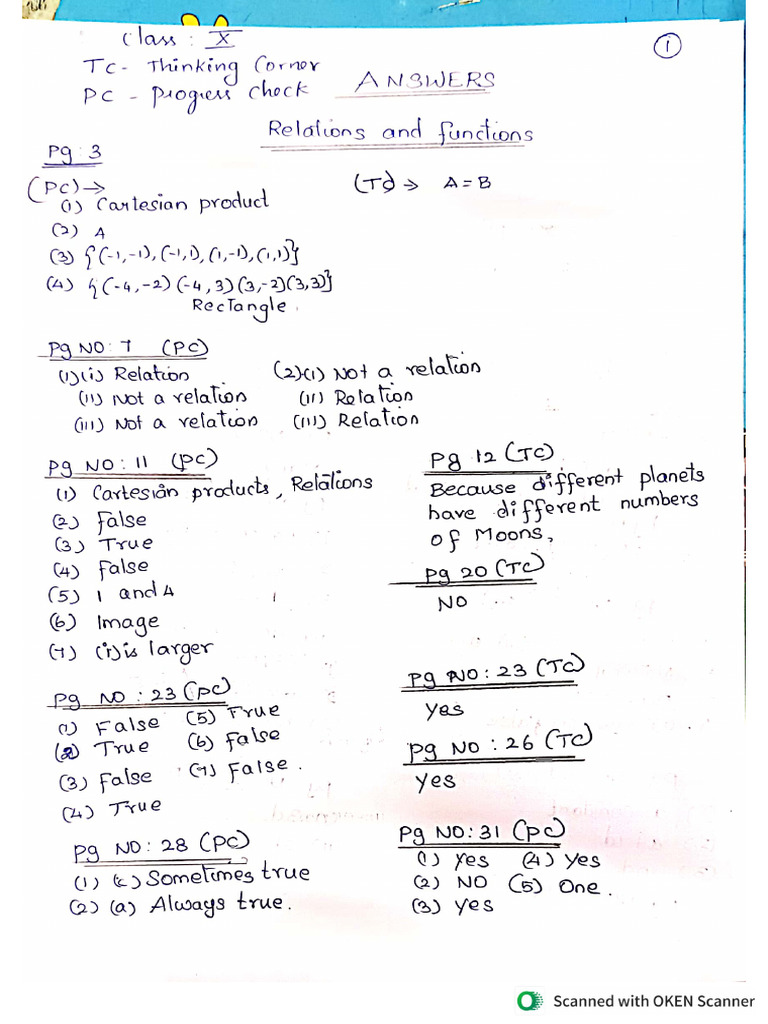 Class : X
①
TC - Thinking Corner
PC - Progress check
ANSWERS
Relations and functions
Pg : 3
(PC) →
(1) Cartesian product
(2) A
(3) {(-1,-1), (-1,1), (1,-1), (1,1)}
(4) {(-4,-2) (-4,3) (3,-2) (3,3)}
Rectangle.
(TC) → A = B
Pg NO: 7 (PC)
(1) (i) Relation
(ii) Not a relation
(iii) Not a relation
(2) (i) Not a relation
(ii) Relation
(iii) Relation
Pg NO : 11 (PC)
(1) Cartesian products, Relations
(2) False
(3) True
(4) False
(5) 1 and 4
(6) Image
(7) (i) is larger
Pg 12 (TC)
Because different planets
have different numbers
of Moons,
Pg 20 (TC)
NO
Pg NO : 23 (PC)
(1) False (5) True
(2) True (6) False
(3) False (7) False.
(4) True
Pg NO : 23 (TC)
Yes
Pg NO : 26 (TC)
Yes
Pg NO : 28 (PC)
(1) (c) Sometimes true
(2) (a) Always true.
Pg NO: 31 (PC)
(1) Yes (4) Yes
(2) NO (5) One.
(3) Yes
Scanned with OKEN Scanner